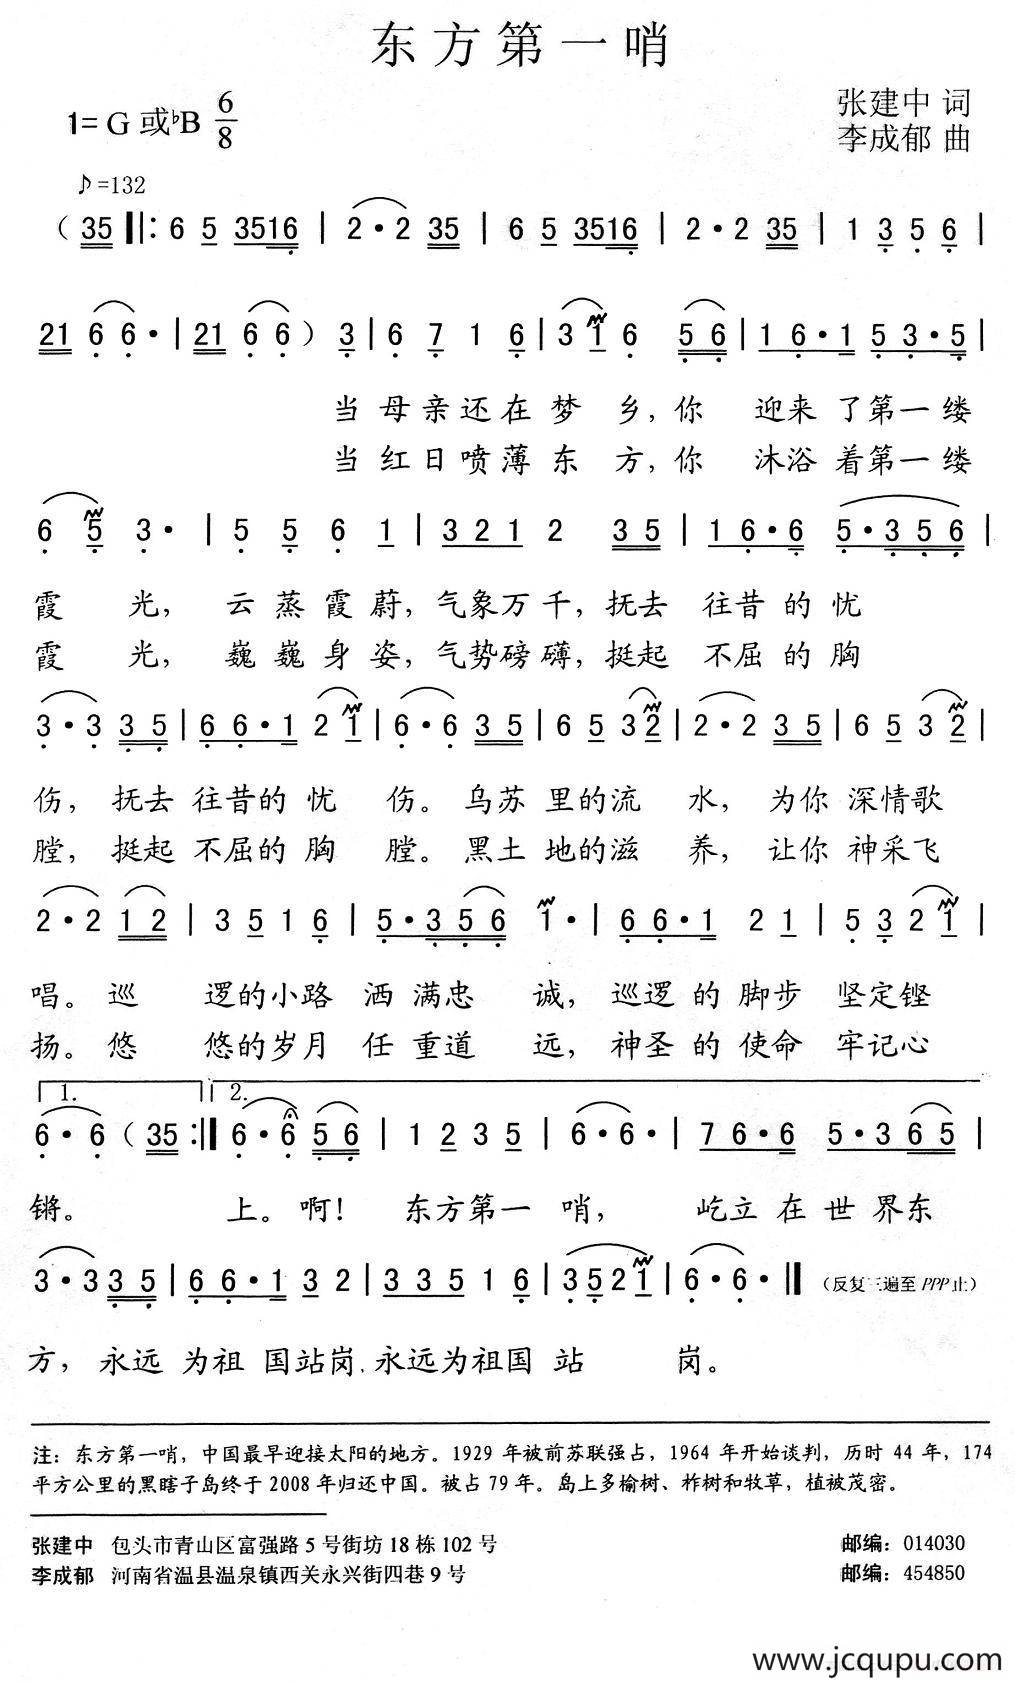 东方第一哨
1=G或♭B 6/8
张建中 词
李成郁 曲
♪=132
（35 ‖: 6 5 3516 | 2·2 35 | 6 5 3516 | 2·2 35 | 1 3 5 6 |
21 6 6· | 21 6 6 ）3 | 6 7 1 6 | 3 1 6 56 | 1 6·1 5 3·5 |
当母亲还在梦乡，你 迎来了第一缕
当红日喷薄东方，你 沐浴着第一缕
6 5 3· | 5 5 6 1 | 321 2 35 | 1 6·6 5·356 |
霞 光， 云蒸霞蔚，气象万千，抚去 往昔的忧
霞 光， 巍巍身姿，气势磅礴，挺起 不屈的胸
3·3 35 | 6 6·1 2 1 | 6·6 35 | 6 5 3 2 | 2·2 35 | 6 5 3 2 |
伤， 抚去 往昔的忧 伤。 乌苏 里的流 水， 为你 深情歌
膛， 挺起 不屈的胸 膛。 黑土 地的滋 养， 让你 神采飞
2·2 12 | 3 5 1 6 | 5·356 1· | 6 6·1 2 1 | 5 3 2 1 |
唱。 巡 逻的小路 洒满忠 诚， 巡逻的脚步 坚定铿
扬。 悠 悠的岁月 任重道 远， 神圣的使命 牢记心
1. 2.
6·6（35 :‖ 6·6 56 | 1 2 3 5 | 6·6· | 7 6·6 5·365 |
锵。 上。啊！ 东方第一 哨， 屹立在世界东
3·3 35 | 6 6·1 3 2 | 335 1 6 | 3 5 2 1 | 6·6· ‖ （反复三遍至PPP止）
方，永远 为祖国站岗，永远为祖国 站 岗。
注：东方第一哨，中国最早迎接太阳的地方。1929 年被前苏联强占，1964 年开始谈判，历时 44 年，174
平方公里的黑瞎子岛终于 2008 年归还中国。被占 79 年。岛上多榆树、柞树和牧草，植被茂密。
张建中 包头市青山区富强路 5 号街坊 18 栋 102 号 邮编：014030
李成郁 河南省温县温泉镇西关永兴街四巷 9 号 邮编：454850
www.jcqupu.com